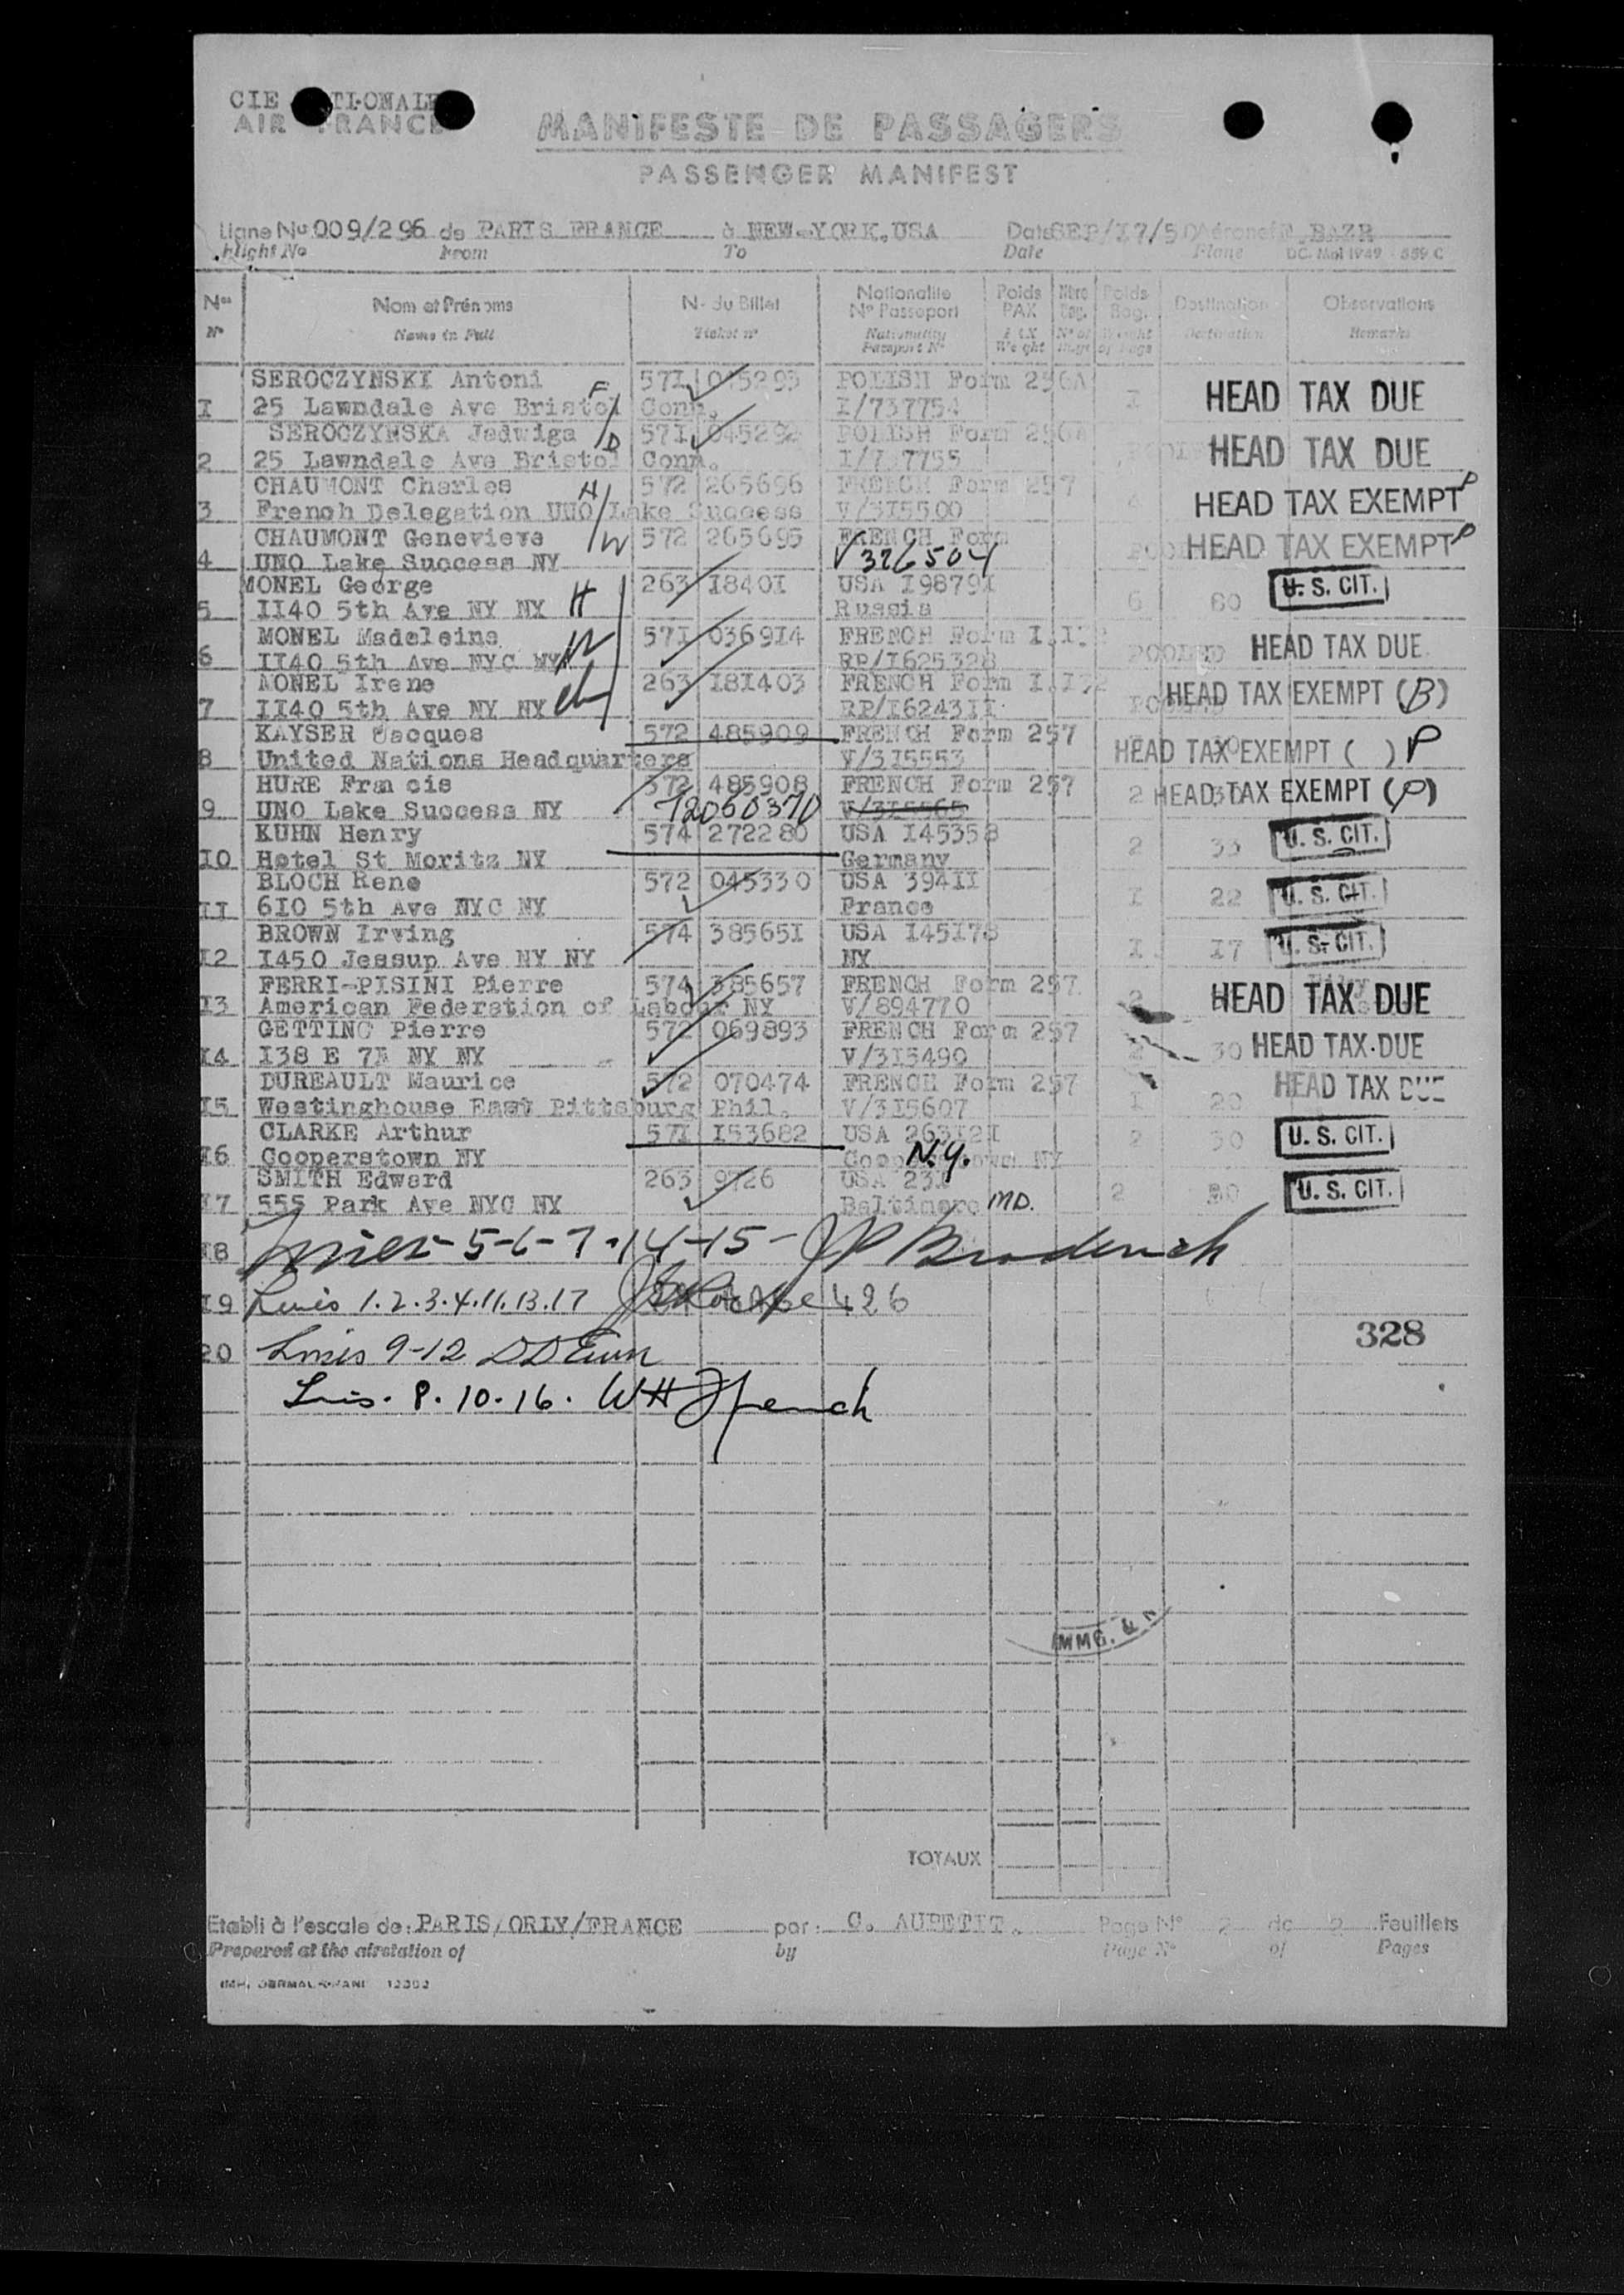 CIE NATIONALE
AIR FRANCE
MANIFESTE DE PASSAGERS
PASSENGER MANIFEST
Ligne No 009/296 de PARIS FRANCE à NEW-YORK.USA Date SEP/I7/5 D'Aéronef F.BAZR
Flight No From To Date Plane DC. Mai 1949 - 559 C
Nos Nom et Prénoms No du Billet Nationalite No Passeport Poids PAX Nbre Bag. Poids Bag. Destination Observations
No Name in Full Ticket no Nationality Passport No PAX Weight No of Bags Weight of bags Destination Remarks
SEROCZYNSKI Antoni F 571 045293 POLISH Form 256A HEAD TAX DUE
I 25 Lawndale Ave Bristol Conn. I/737754 I
SEROCZYNSKA Jadwiga D 571 045292 POLISH Form 256A HEAD TAX DUE
2 25 Lawndale Ave Bristol Conn. I/737755
CHAUMONT Charles H 572 265696 FRENCH Form 257 HEAD TAX EXEMPT P
3 French Delegation UNO Lake Success V/315500 4
CHAUMONT Genevieve W 572 265695 FRENCH Form HEAD TAX EXEMPT P
4 UNO Lake Success NY V 326504
MONEL George 263 18401 USA 198791 U. S. CIT.
5 II40 5th Ave NY NY H Russia 6 60
MONEL Madeleine W 571 036914 FRENCH Form I.I32 HEAD TAX DUE
6 II40 5th Ave NYC NY RP/I625328 POOLED
MONEL Irene 263 181403 FRENCH Form I.I32 HEAD TAX EXEMPT (B)
7 II40 5th Ave NY NY ch RP/I624311 POOLED
KAYSER Jacques 572 485909 FRENCH Form 257 HEAD TAX EXEMPT ( ) P
8 United Nations Headquarters V/315553
HURE Francis 572 485908 FRENCH Form 257 2 31 HEAD TAX EXEMPT (P)
9 UNO Lake Success NY 12060370 V/315565
KUHN Henry 574 272280 USA 145358 U. S. CIT.
I0 Hotel St Moritz NY Germany 2 33
BLOCH Rene 572 045330 USA 39411 U. S. CIT.
II 610 5th Ave NYC NY France I 22
BROWN Irving 574 385651 USA 145178 U. S. CIT.
I2 I450 Jessup Ave NY NY NY I I7
FERRI-PISINI Pierre 574 385657 FRENCH Form 257 HEAD TAX DUE
I3 American Federation of Labour NY V/894770 2
GETTING Pierre 572 069893 FRENCH Form 257 HEAD TAX DUE
I4 I38 E 7 NY NY V/315490 2 30
DUREAULT Maurice 572 070474 FRENCH Form 257 HEAD TAX DUE
I5 Westinghouse East Pittsburg Phil. V/315607 I 20
CLARKE Arthur 571 153682 USA 263121 2 30 U. S. CIT.
I6 Cooperstown NY Cooperstown NY N.Y.
SMITH Edward 263 9726 USA 231 2 30 U. S. CIT.
I7 555 Park Ave NYC NY Baltimore MD.
I8 Lines-5-6-7-14-15- JP Broderick
I9 Lines 1.2.3.4.11.13.17 426
328
20 Lines 9-12
Lines. 8.10.16. WH French
IMMG. & N
TOTAUX
Etabli à l'escale de: PARIS/ORLY/FRANCE par: C. AUPETIT. Page No 2 de 2 Feuillets
Prepared at the airstation of by Page No of Pages